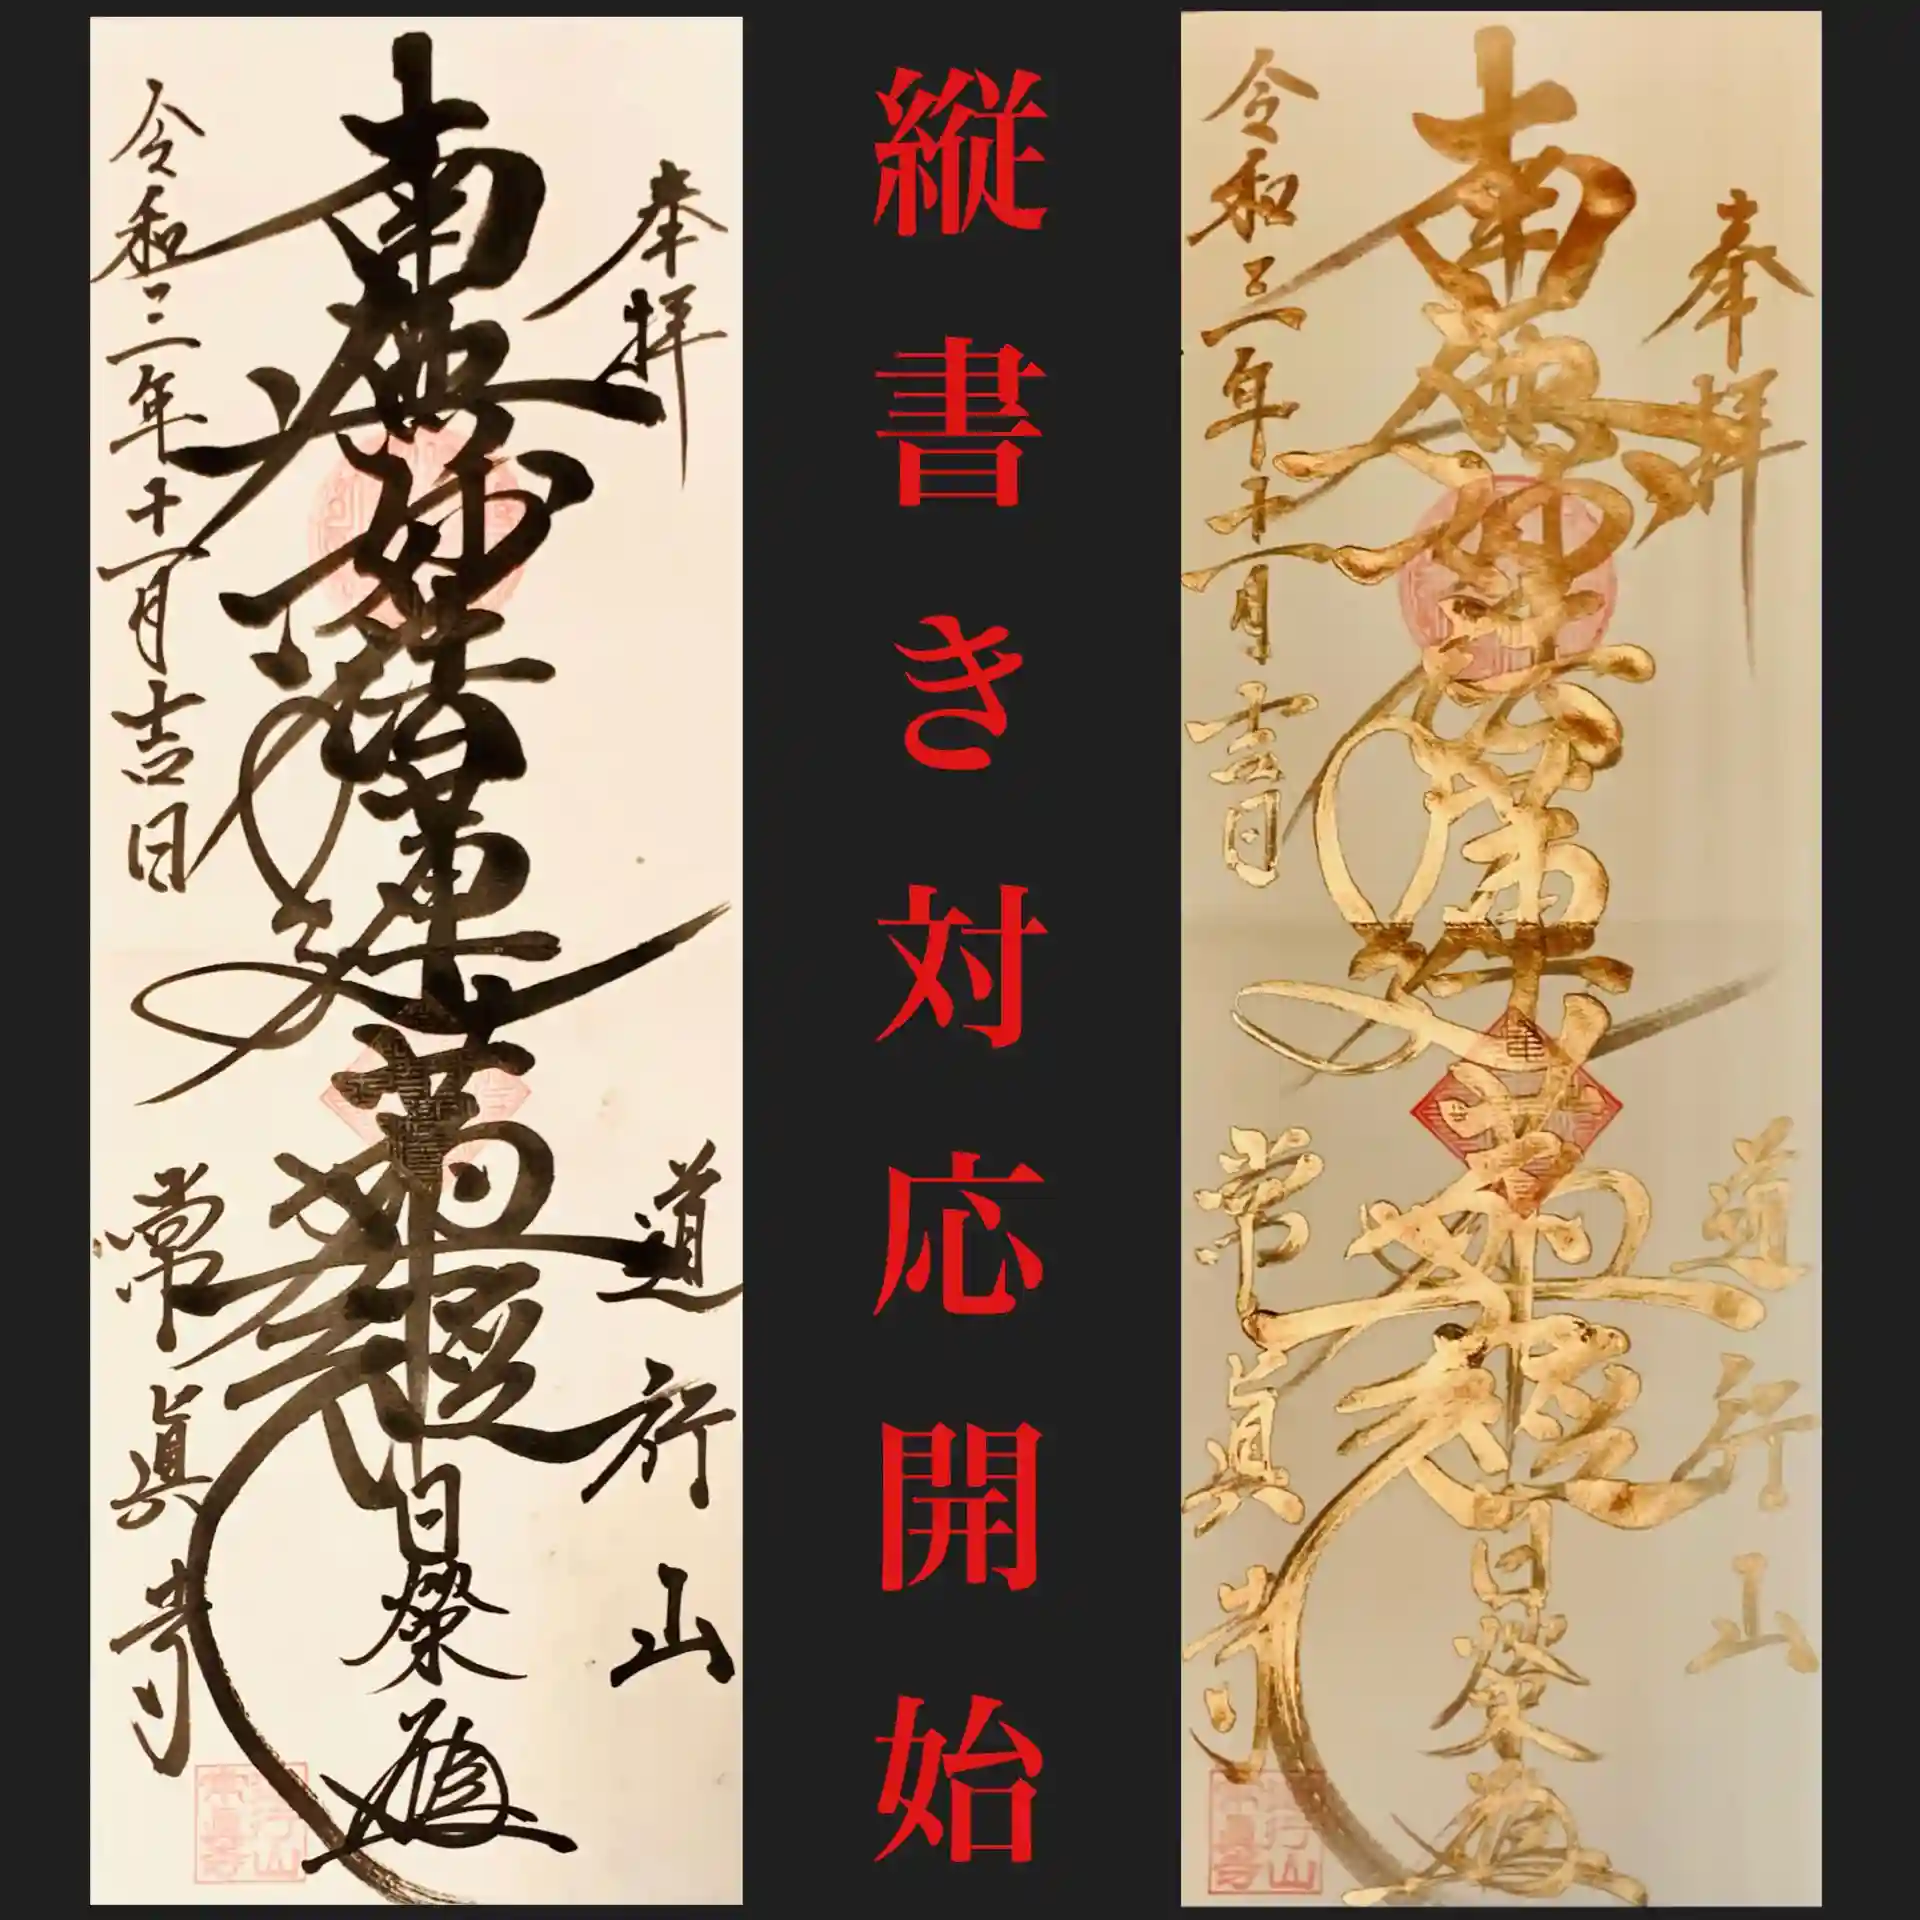 奉拝
道行山
南無妙法蓮華經
日榮
令和三年十一月吉日
常眞寺
縦書き対応開始
奉拝
道行山
南無妙法蓮華經
日榮
令和三年十一月吉日
常眞寺